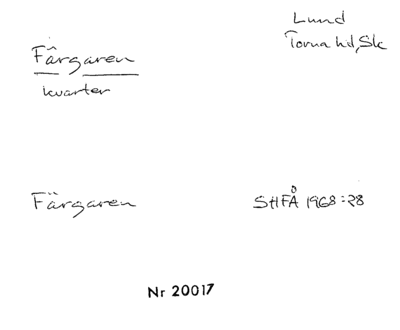 Färgaren
kvarter
Lund
Torna hd, Sk
Färgaren
SHFÅ 1968:28
Nr 20017